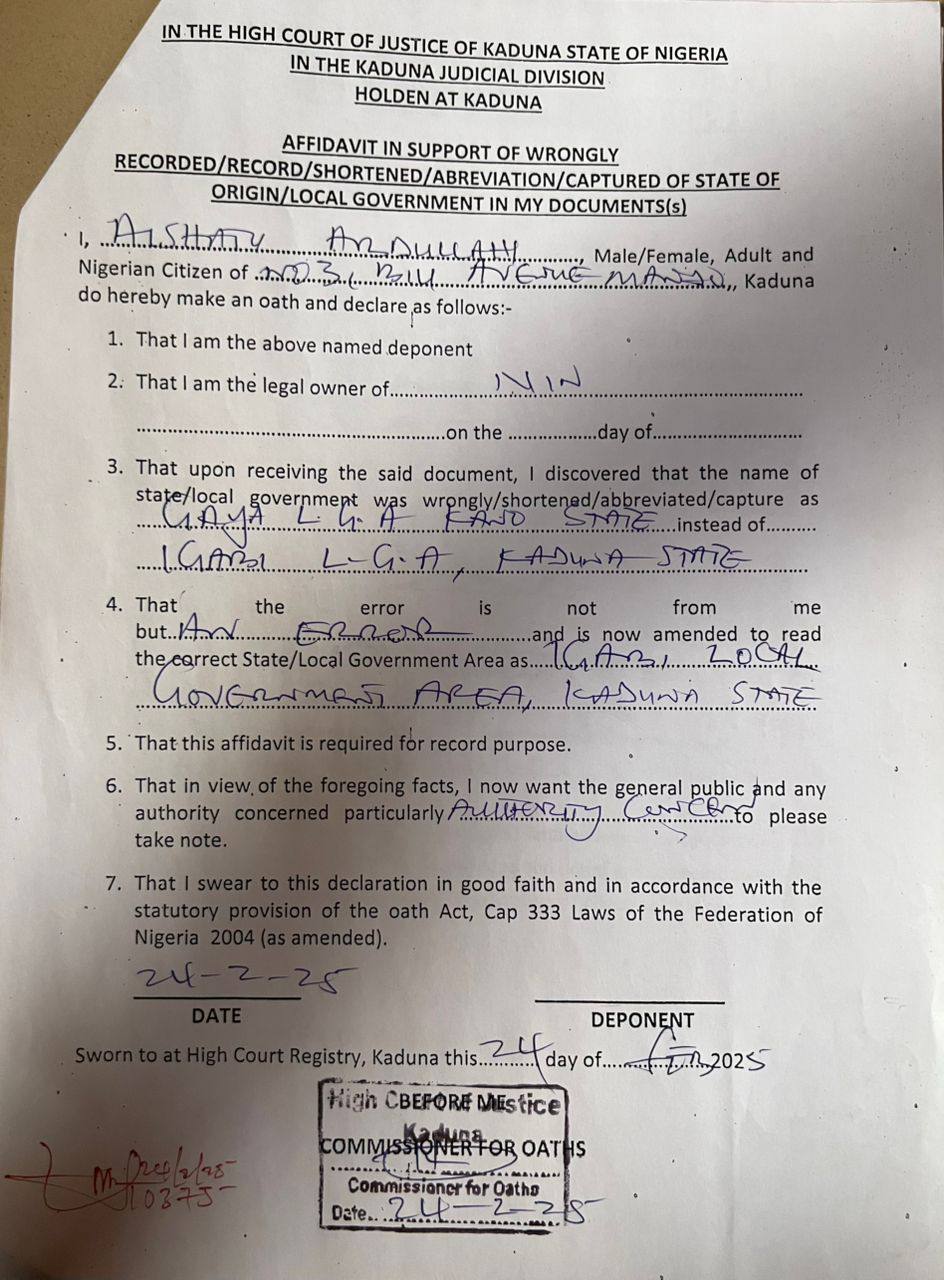 IN THE HIGH COURT OF JUSTICE OF KADUNA STATE OF NIGERIA
IN THE KADUNA JUDICIAL DIVISION
HOLDEN AT KADUNA
AFFIDAVIT IN SUPPORT OF WRONGLY
RECORDED/RECORD/SHORTENED/ABREVIATION/CAPTURED OF STATE OF
ORIGIN/LOCAL GOVERNMENT IN MY DOCUMENTS(s)
I, AISHATU ABDULLAHI, Male/Female, Adult and
Nigerian Citizen of NO 3, AVENUE MANDO,, Kaduna
do hereby make an oath and declare as follows:-
1. That I am the above named deponent
2. That I am the legal owner of NIN
on the day of
3. That upon receiving the said document, I discovered that the name of
state/local government was wrongly/shortened/abbreviated/capture as
GAYA L.G.A KANO STATE instead of
IGABI L.G.A, KADUNA STATE
4. That the error is not from me
but AN ERROR and is now amended to read
the correct State/Local Government Area as IGABI LOCAL
GOVERNMENT AREA, KADUNA STATE
5. That this affidavit is required for record purpose.
6. That in view of the foregoing facts, I now want the general public and any
authority concerned particularly AUTHORITY CONCERN to please
take note.
7. That I swear to this declaration in good faith and in accordance with the
statutory provision of the oath Act, Cap 333 Laws of the Federation of
Nigeria 2004 (as amended).
24-2-25
DATE
DEPONENT
Sworn to at High Court Registry, Kaduna this 24 day of FEB, 2025
High C BEFORE ME stice
Kaduna
COMMISSIONER FOR OATHS
Commissioner for Oaths
Date 24-2-25
24/2/25